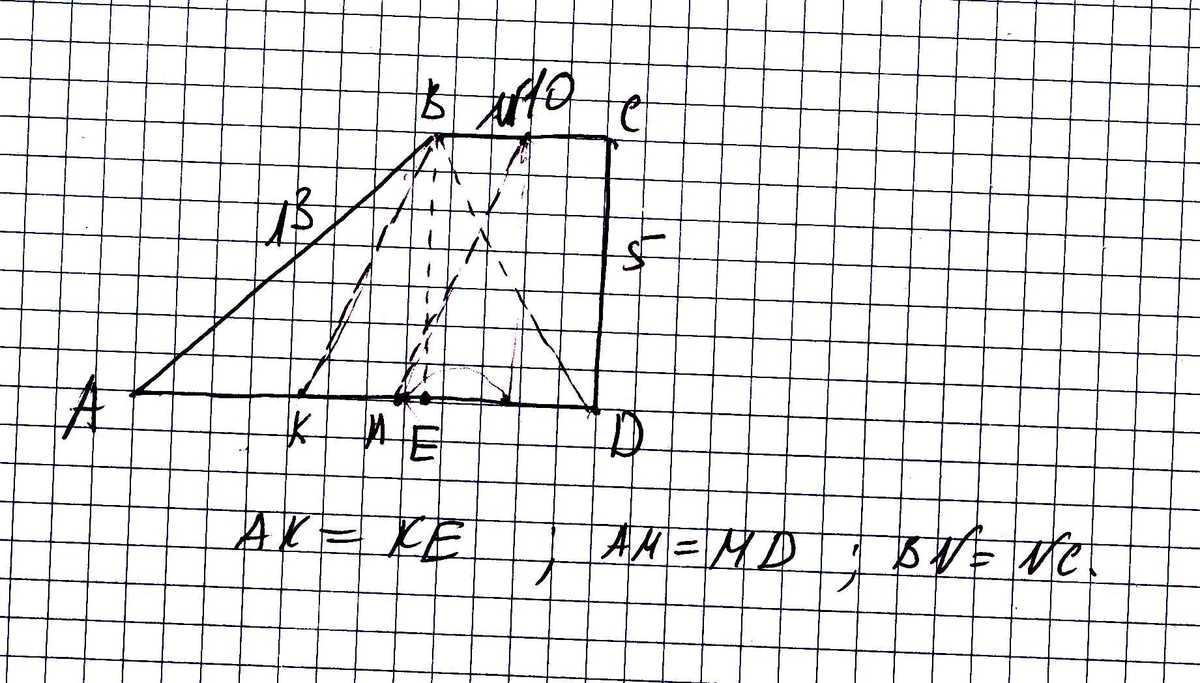 B N 10 C
13
5
A K M E D
AK = KE ; AM = MD ; BN = NC.